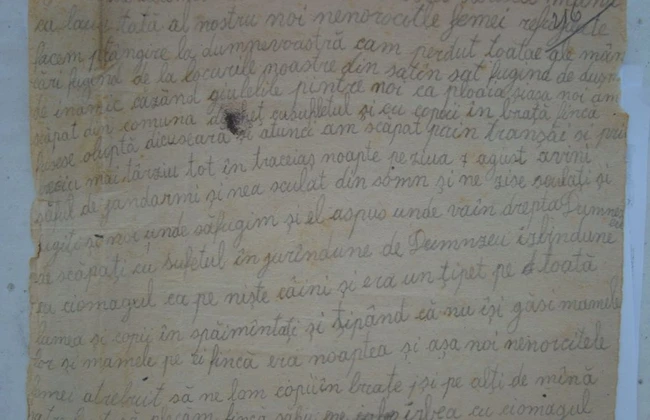 cu lautatată al nostru noi nenorocitle femei refugiate
facem plângire la dumpevoastră cam perdut toatae ale mân
cări fugind de la locurile noastre din satîn sat fugind de dușm
de inamic cazând giulelile pintre noi ca ploaia și aca noi am
scăpat din comuna cusufletul și cu copiii în brață fincă
fusese oluptă dicuseară și atunci am scăpat prin transae și pri
mai târziu tot în traceiaș noapte pe ziua 1 agust avini
șăful de jandarmi și nea sculat din somn și ne zise sculați și
fugiți și noi unde săfugim și el aspus unde văin drepta Dumnez
eu
scăpați cu sufletul în gurîndune de Dumnzeu izbindune
cu ciomagul ca pe niște câini și era un țipet pe toată
lumea și copii în spăimîntați și țipând că nu își găsi mamele
lor și mamele pe ei fincă era noaptea și așa noi nenorcitele
femei atrebuit să ne lom copiiîn brațe și pe alți de mînă
fincă ne cu ciomagul
216